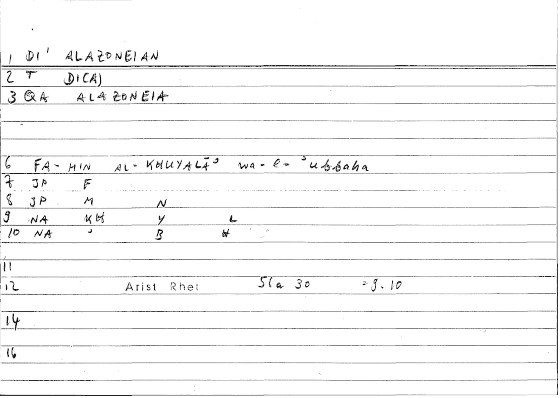 1 DI' ALAZONEIAN
2 T DI(A)
3 QA ALAZONEIA
6 FA-MIN AL-KHUYALĀʾ wa-l-ʾubbaha
7 JP F
8 JP M N
9 NA KH Y L
10 NA ʾ B H
11
12 Arist Rhet 51a 30 =9.10
14
16